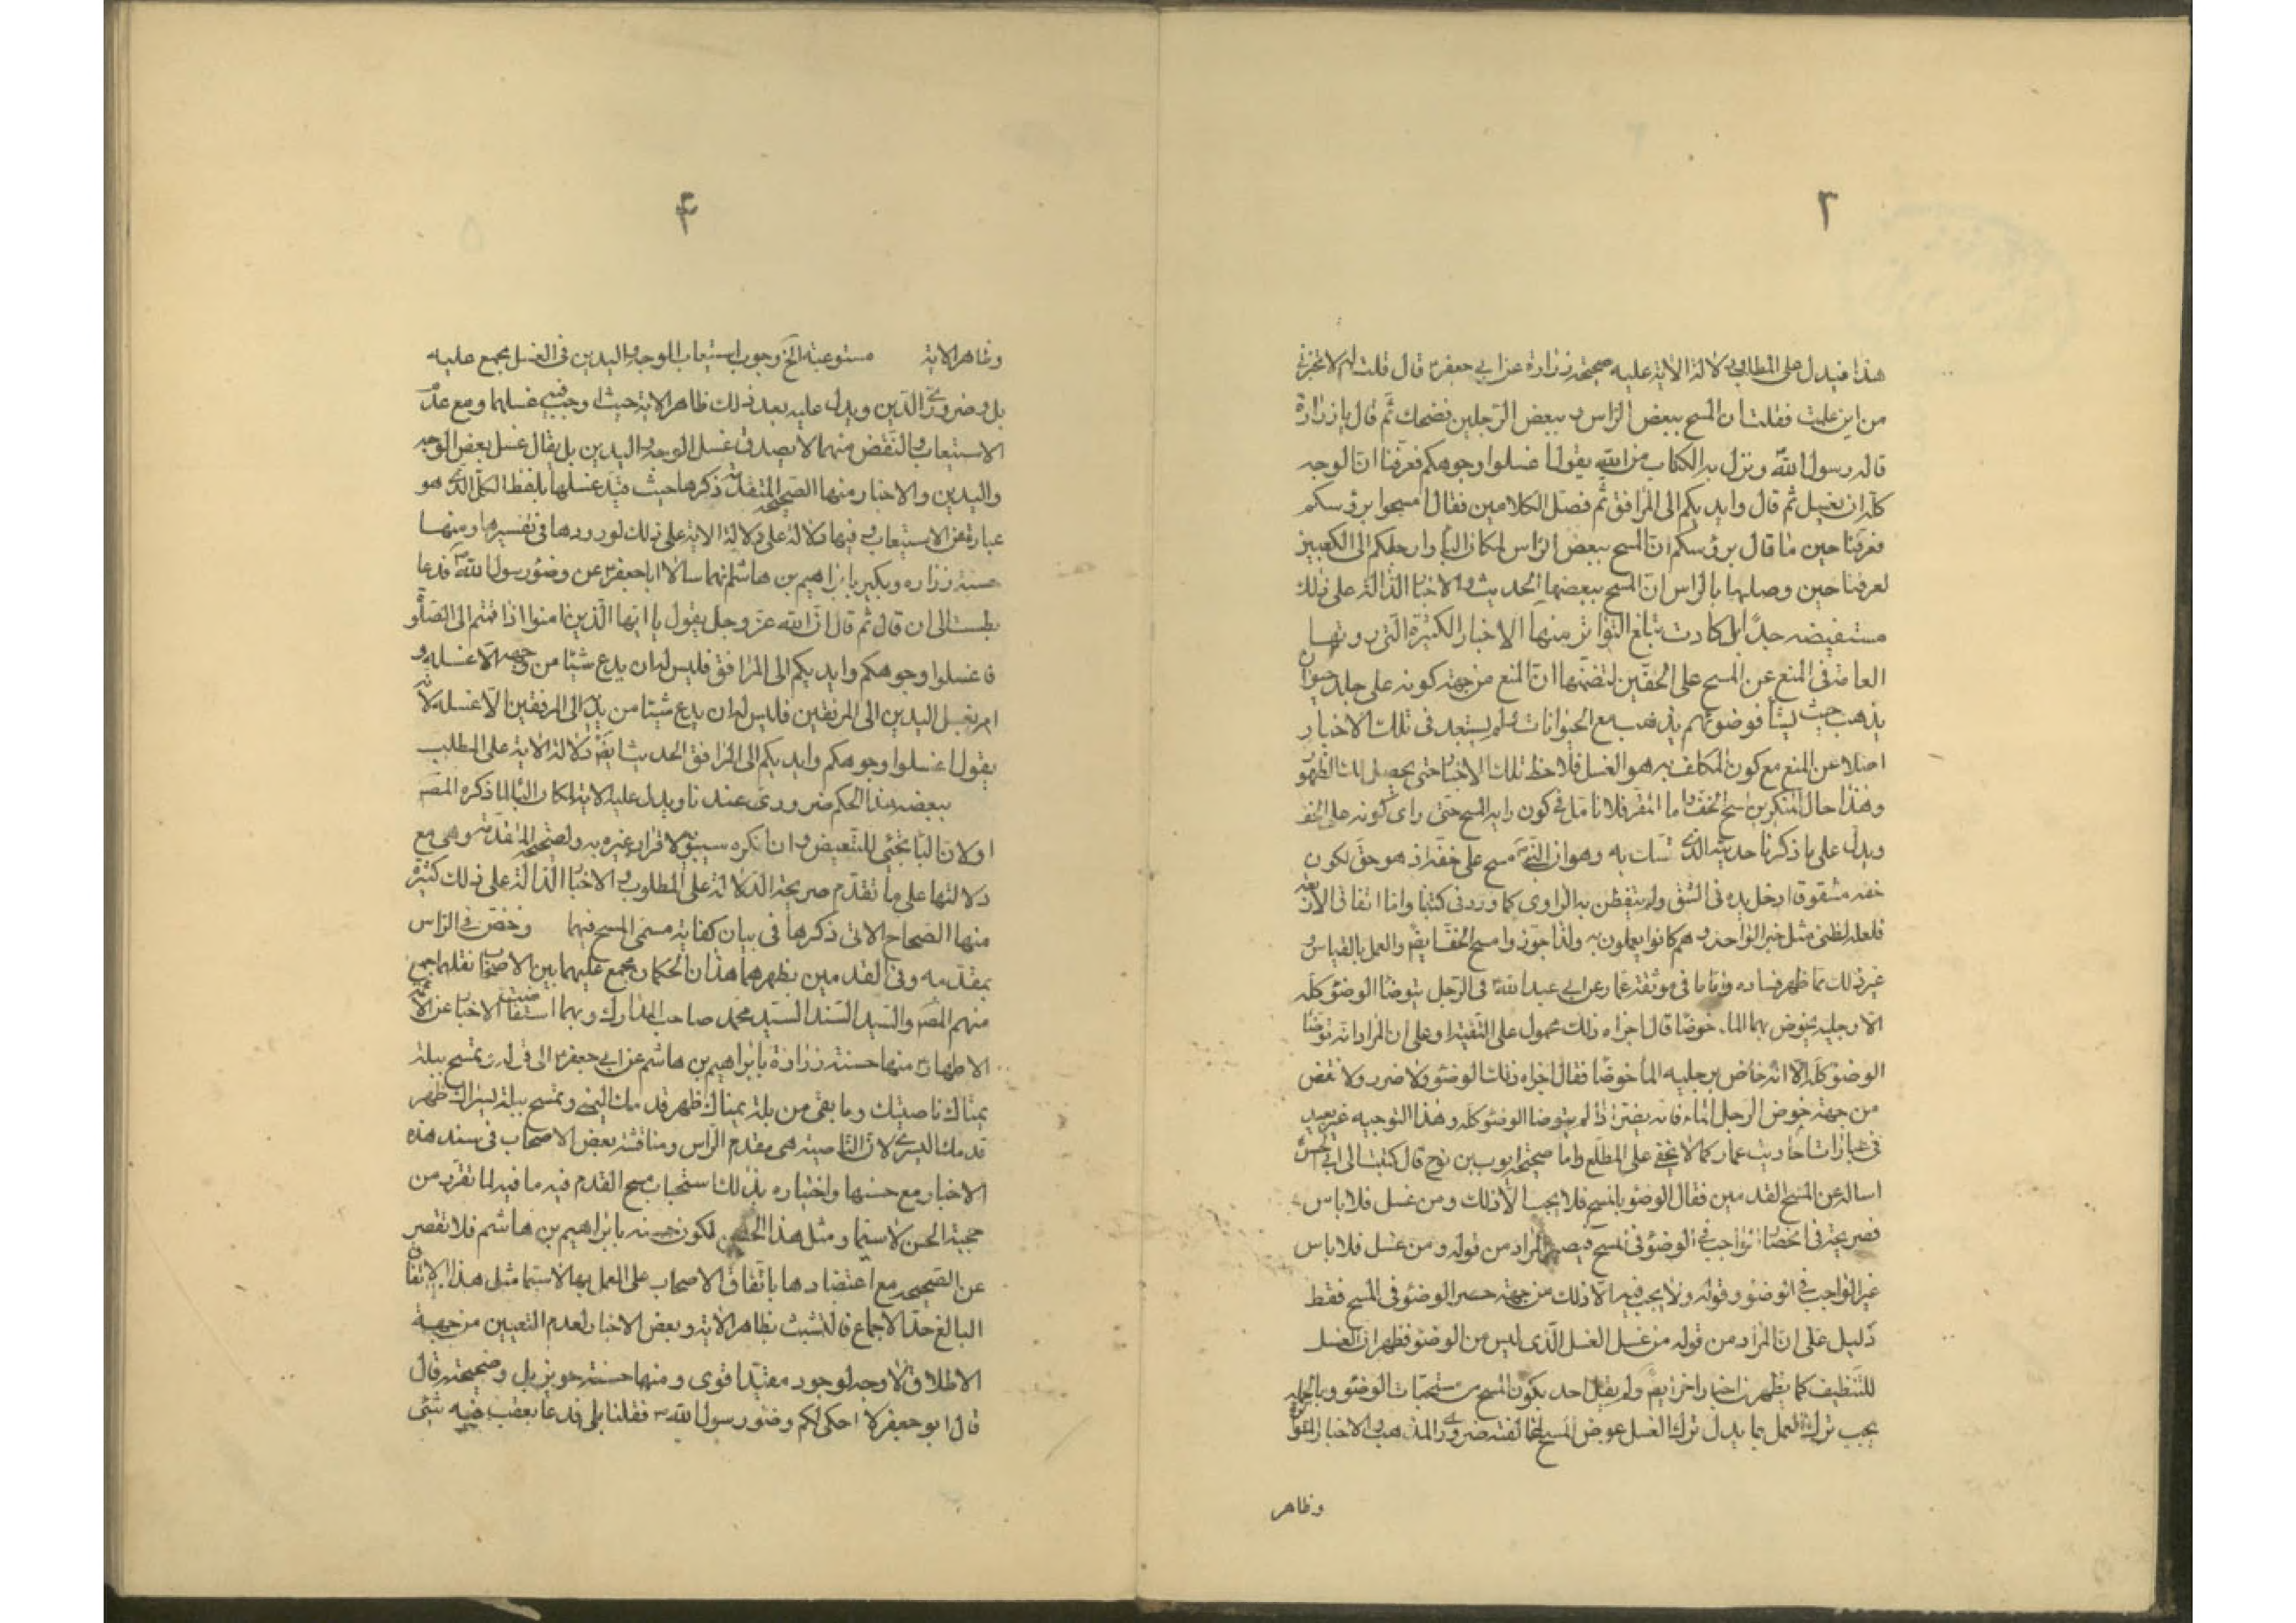 ٣
هذا فيدل على المطلوب دلالة الاية عليه صحيحة زرارة عن ابي جعفر ع قال قلت له الا تخبرني
من اين علمت فقلت ان المسح ببعض الراس و ببعض الرجلين فضحك ثم قال يا زرارة
قاله رسول الله ص ونزل به الكتاب من الله يقول اغسلوا وجوهكم فعرفنا ان الوجه
كله ان يغسل ثم قال وايديكم الى المرافق ثم فصل الكلامين فقال امسحوا برؤسكم
فعرفنا حين ما قال برؤسكم ان المسح ببعض الراس لمكان الباء وارجلكم الى الكعبين
لعرفنا حين وصلها بالراس ان المسح ببعضها الحديث والاخبار الدالة على ذلك
مستفيضه جدا بل كادت تبلغ التواتر منها الاخبار الكثيرة التي روتها
العامة في المنع عن المسح على الخفين لتضمنها ان المنع من جهة كونه على جلد حيوان
يذهب حيث يشأ فوضوئهم يذهب مع الحيوانات ولم يستبعد في تلك الاخبار
اصلا عن المنع مع كون المكلف به هو الغسل فلاحظ تلك الاخبار حتى يحصل لك الظهور
وهذا حال المنكرين مسح الخف واما المقر فلا تامل في كون رايه المسح حتى راى كونه على الخف
ويدل على ما ذكرنا حديثه الذي تمسك به وهو ان النبي ص مسح على خفه اذ هو حق لكون
خفه مشقوقا ادخل يده في الشق ولم يتفطن به الراوي كما ورد في كتبنا واما اتفاق الاربعة
فلعله لظني مثل خبر الواحد وهم كانوا يعملون به ولذا جوزوا مسح الخف ايضا والعمل بالقياس و
غير ذلك مما ظهر فساده واما ما في موثقة عمار عن ابي عبد الله ع في الرجل يتوضا الوضوء كله
الا رجليه يخوض بهما الماء خوضا قال اجزاه ذلك محمول على التقية او على ان المراد انه توضا
الوضوء كله الا انه خاض برجليه الماء خوضا فقال اجزاه ذلك الوضوء ولا ضرر ولا نقض
من جهة خوض الرجل الماء فانه يضر اذا لم يتوضا الوضوء كله وهذا التوجيه غير بعيد
في عبارات احاديث عمار كما لا يخفى على المطلع واما صحيحة ايوب بن نوح قال كتبت الى ابي الحسن
اساله عن المسح القدمين فقال الوضوء بالمسح فلا يجب الا ذلك ومن غسل فلا باس
فصريحة في انحصار الواجب في الوضوء في المسح فيصير المراد من قوله ومن غسل فلا باس
غير الواجب في الوضوء وقوله ولا يجب فيه الا ذلك من جهة حصر الوضوء في المسح فقط
دليل على ان المراد من قوله من غسل الغسل الذي ليس من الوضوء فظهر ان الغسل
للتنظيف كما يظهر من اخبار اخر ايضا ولم يقل احد بكون المسح من مستحبات الوضوء وبالجملة
يجب ترك العمل بما يدل ترك الغسل عوض المسح لمخالفته ضروري المذهب والاخبار المتواترة
وظاهر
۴
وظاهر الاية مستوعبة الخ وجوب استيعاب الوجه واليدين في الغسل مجمع عليه
بل وضروري الدين ويدل عليه بعد ذلك ظاهر الاية حيث اوجب فيه غسلهما ومع عدم
الاستيعاب والنقض منهما لا يصدق غسل الوجه واليدين بل يقال غسل بعض الوجه
واليدين والاخبار منها الصحيحة المتقدمة ذكرها حيث قيد غسلها بلفظ الكل الذي هو
عبارة عن الاستيعاب وفيها دلالة على دلالة الاية على ذلك لورودها في تفسيرها ومنها
حسنة زراره وبكير بابراهيم بن هاشم انهما سالا ابا جعفر ع عن وضوء رسول الله ص فدعا
بطست الى ان قال ثم قال ان الله عز وجل يقول يا ايها الذين امنوا اذا قمتم الى الصلوة
فاغسلوا وجوهكم وايديكم الى المرافق فليس له ان يدع شيئا من وجهه الا غسله و
امر بغسل اليدين الى المرفقين فليس له ان يدع شيئا من يديه الى المرفقين الا غسله لانه
يقول اغسلوا وجوهكم وايديكم الى المرافق الحديث ايضا دلالة الاية على المطلب
ببعضه هذا الحكم ضروري عندنا ويدل عليه الاية لمكان الباء لما ذكره المص
اولا ان الباء تجئي للتبعيض وان انكره سيبويه لاقرار غيره به ولصحيحة المتقدمة وهي مع
دلالتها على ما تقدم صريحة الدلالة على المطلوب والاخبار الدالة على ذلك كثيرة
منها الصحاح الاتي ذكرها في بيان كفاية مسمى المسح فيهما وخص في الراس
بمقدمه وفي القدمين بظهرهما هذان الحكمان مجمع عليهما بين الاصحاب نقلهما جمع
منهم المص والسيد السند السيد محمد صاحب المدارك وبهما استفاضت الاخبار عن الائمة
الاطهار ع منها حسنة زرارة بابراهيم بن هاشم عن ابي جعفر ع الى قوله وتمسح ببلة
يمناك ناصيتك وما بقى من بلة يمناك ظهر قدمك اليمنى وتمسح ببلة يسراك ظهر
قدمك اليسرى لان الناصية هي مقدم الراس ومناقشة بعض الاصحاب في سند هذه
الاخبار مع حسنها واختياره بذلك استحباب مسح القدم فيه ما فيه لما تقرر من
حجية الحسن لا سيما ومثل هذا الحسن لكون حسنه بابراهيم بن هاشم فلا تقصر
عن الصحيحة مع اعتضادها باتفاق الاصحاب على العمل بها لا سيما مثل هذا الاتفاق
البالغ حد الاجماع فالتشبث بظاهر الاية وبعض الاخبار لعدم التعيين من جهة
الاطلاق لا وجه لوجود مقيد اقوى ومنها حسنة حريز بل وصحيحته قال
قال ابو جعفر الا احكى لكم وضوء رسول الله ص فقلنا بلى فدعا بقعب فيه شئي